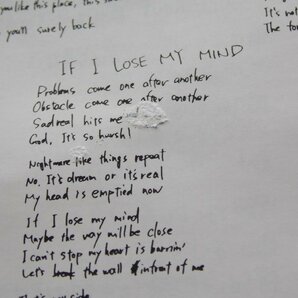 you like this place, This
you'll surely back
It's not
The
IF I LOSE MY MIND
Problems come one after another
Obstacle come one after another
Sadreal hits me
God, It's so hursh!
Nightmare like things repeat
No. It's dream or its real
My head is emptied now
If I lose my mind
Maybe the way will be close
I can't stop my heart is burnin'
Let's break the wall infront of me